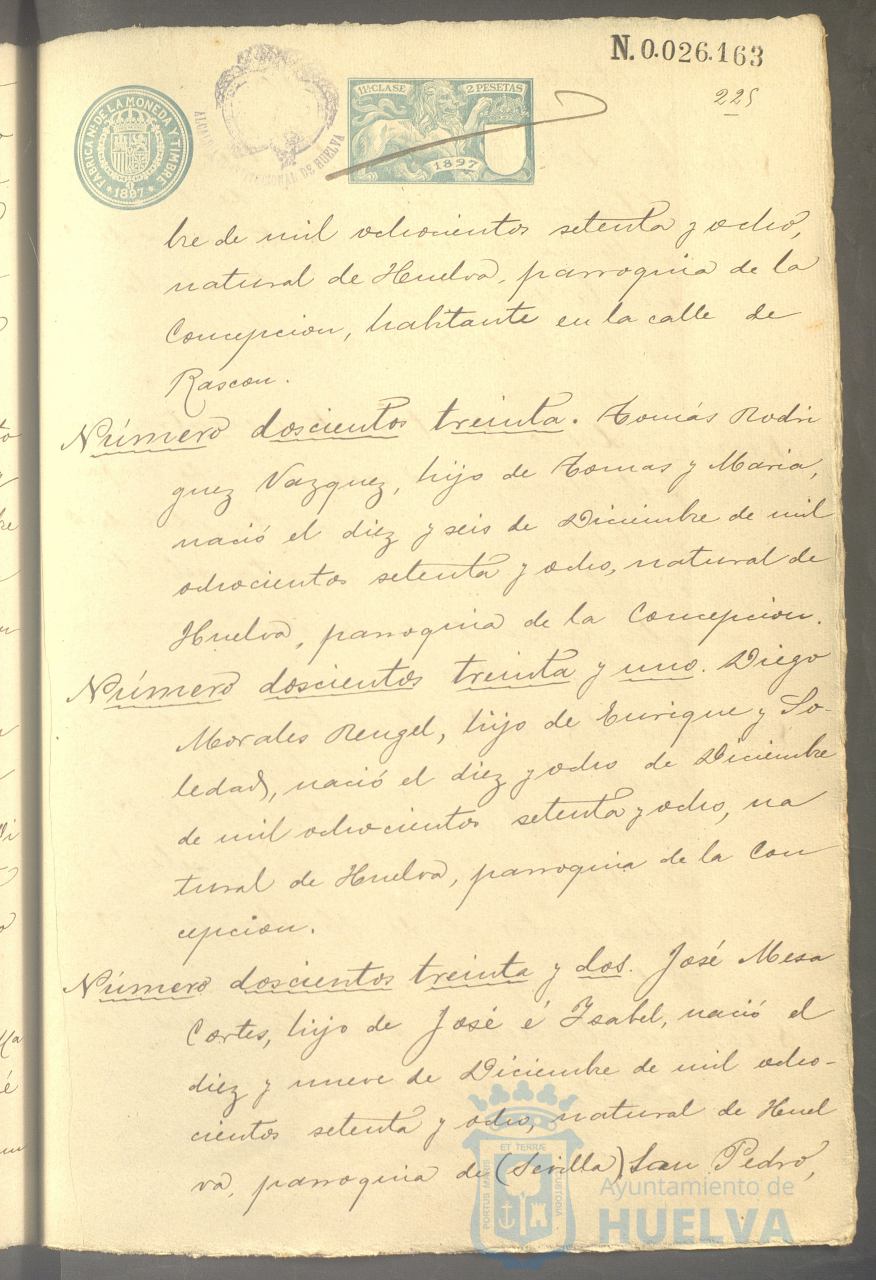 N.0.026.163
225
FABRICA N. DE LA MONEDA Y TIMBRE
1897
ALCALDIA CONSTITUCIONAL DE HUELVA
11ª CLASE 2 PESETAS
1897
bre de mil ochocientos setenta y ocho,
natural de Huelva, parroquia de la
Concepcion, habitante en la calle de
Rascon.
Número doscientos treinta. Tomás Rodri
guez Vazquez, hijo de Tomas y Maria,
nació el diez y seis de Diciembre de mil
ochocientos setenta y ocho, natural de
Huelva, parroquia de la Concepcion.
Número doscientos treinta y uno. Diego
Morales Rengel, hijo de Enrique y So-
ledad, nació el diez y ocho de Diciembre
de mil ochocientos setenta y ocho, na
tural de Huelva, parroquia de la Con
cepcion.
Número doscientos treinta y dos. José Mesa
Cortes, hijo de José é Isabel, nació el
diez y nueve de Diciembre de mil ocho-
cientos setenta y ocho, natural de Huel
va, parroquia de (Sevilla) San Pedro,
PORTUS MARIS ET TERRÆ CUSTODIA
Ayuntamiento de
HUELVA